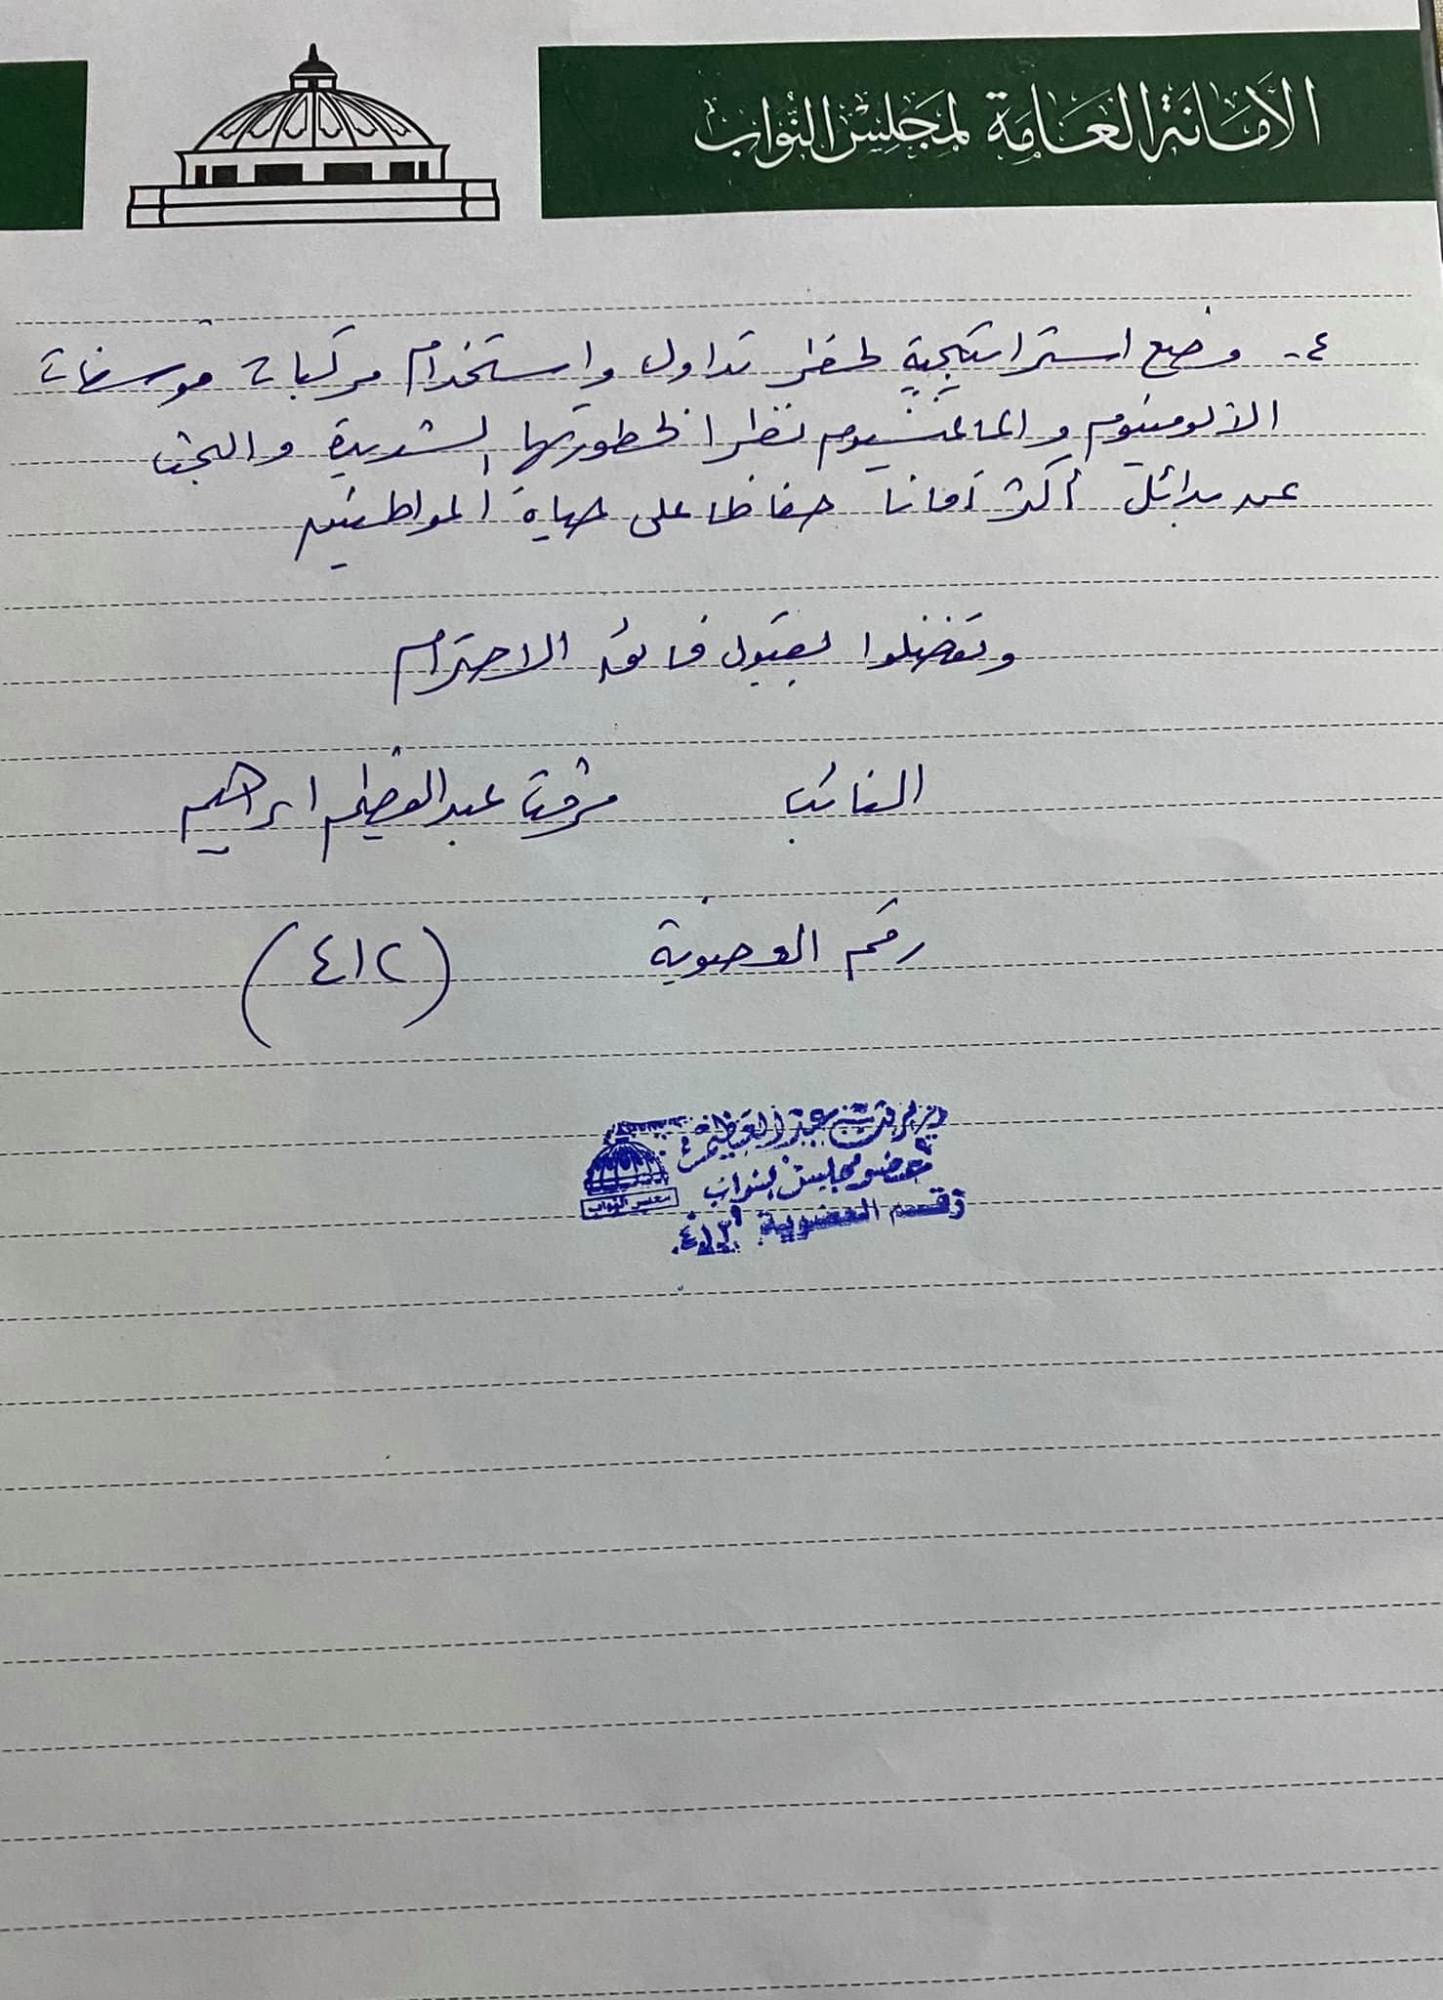 الأمانة العامة لمجلس النواب
٤- وضع استراتيجية لحظر تداول واستخدام مركبات فوسفات
الألومنيوم والماغنسيوم نظرا لخطورتها الشديدة والبحث
عن بدائل أكثر أمانا حفاظا على حياة المواطنين
وتفضلوا بقبول فائق الاحترام
النائب مرفت عبدالعظيم ابراهيم
رقم العضوية (٤١٢)
عبد العظيم
عضو مجلس النواب
مجلس النواب
رقم العضوية ٤١٢